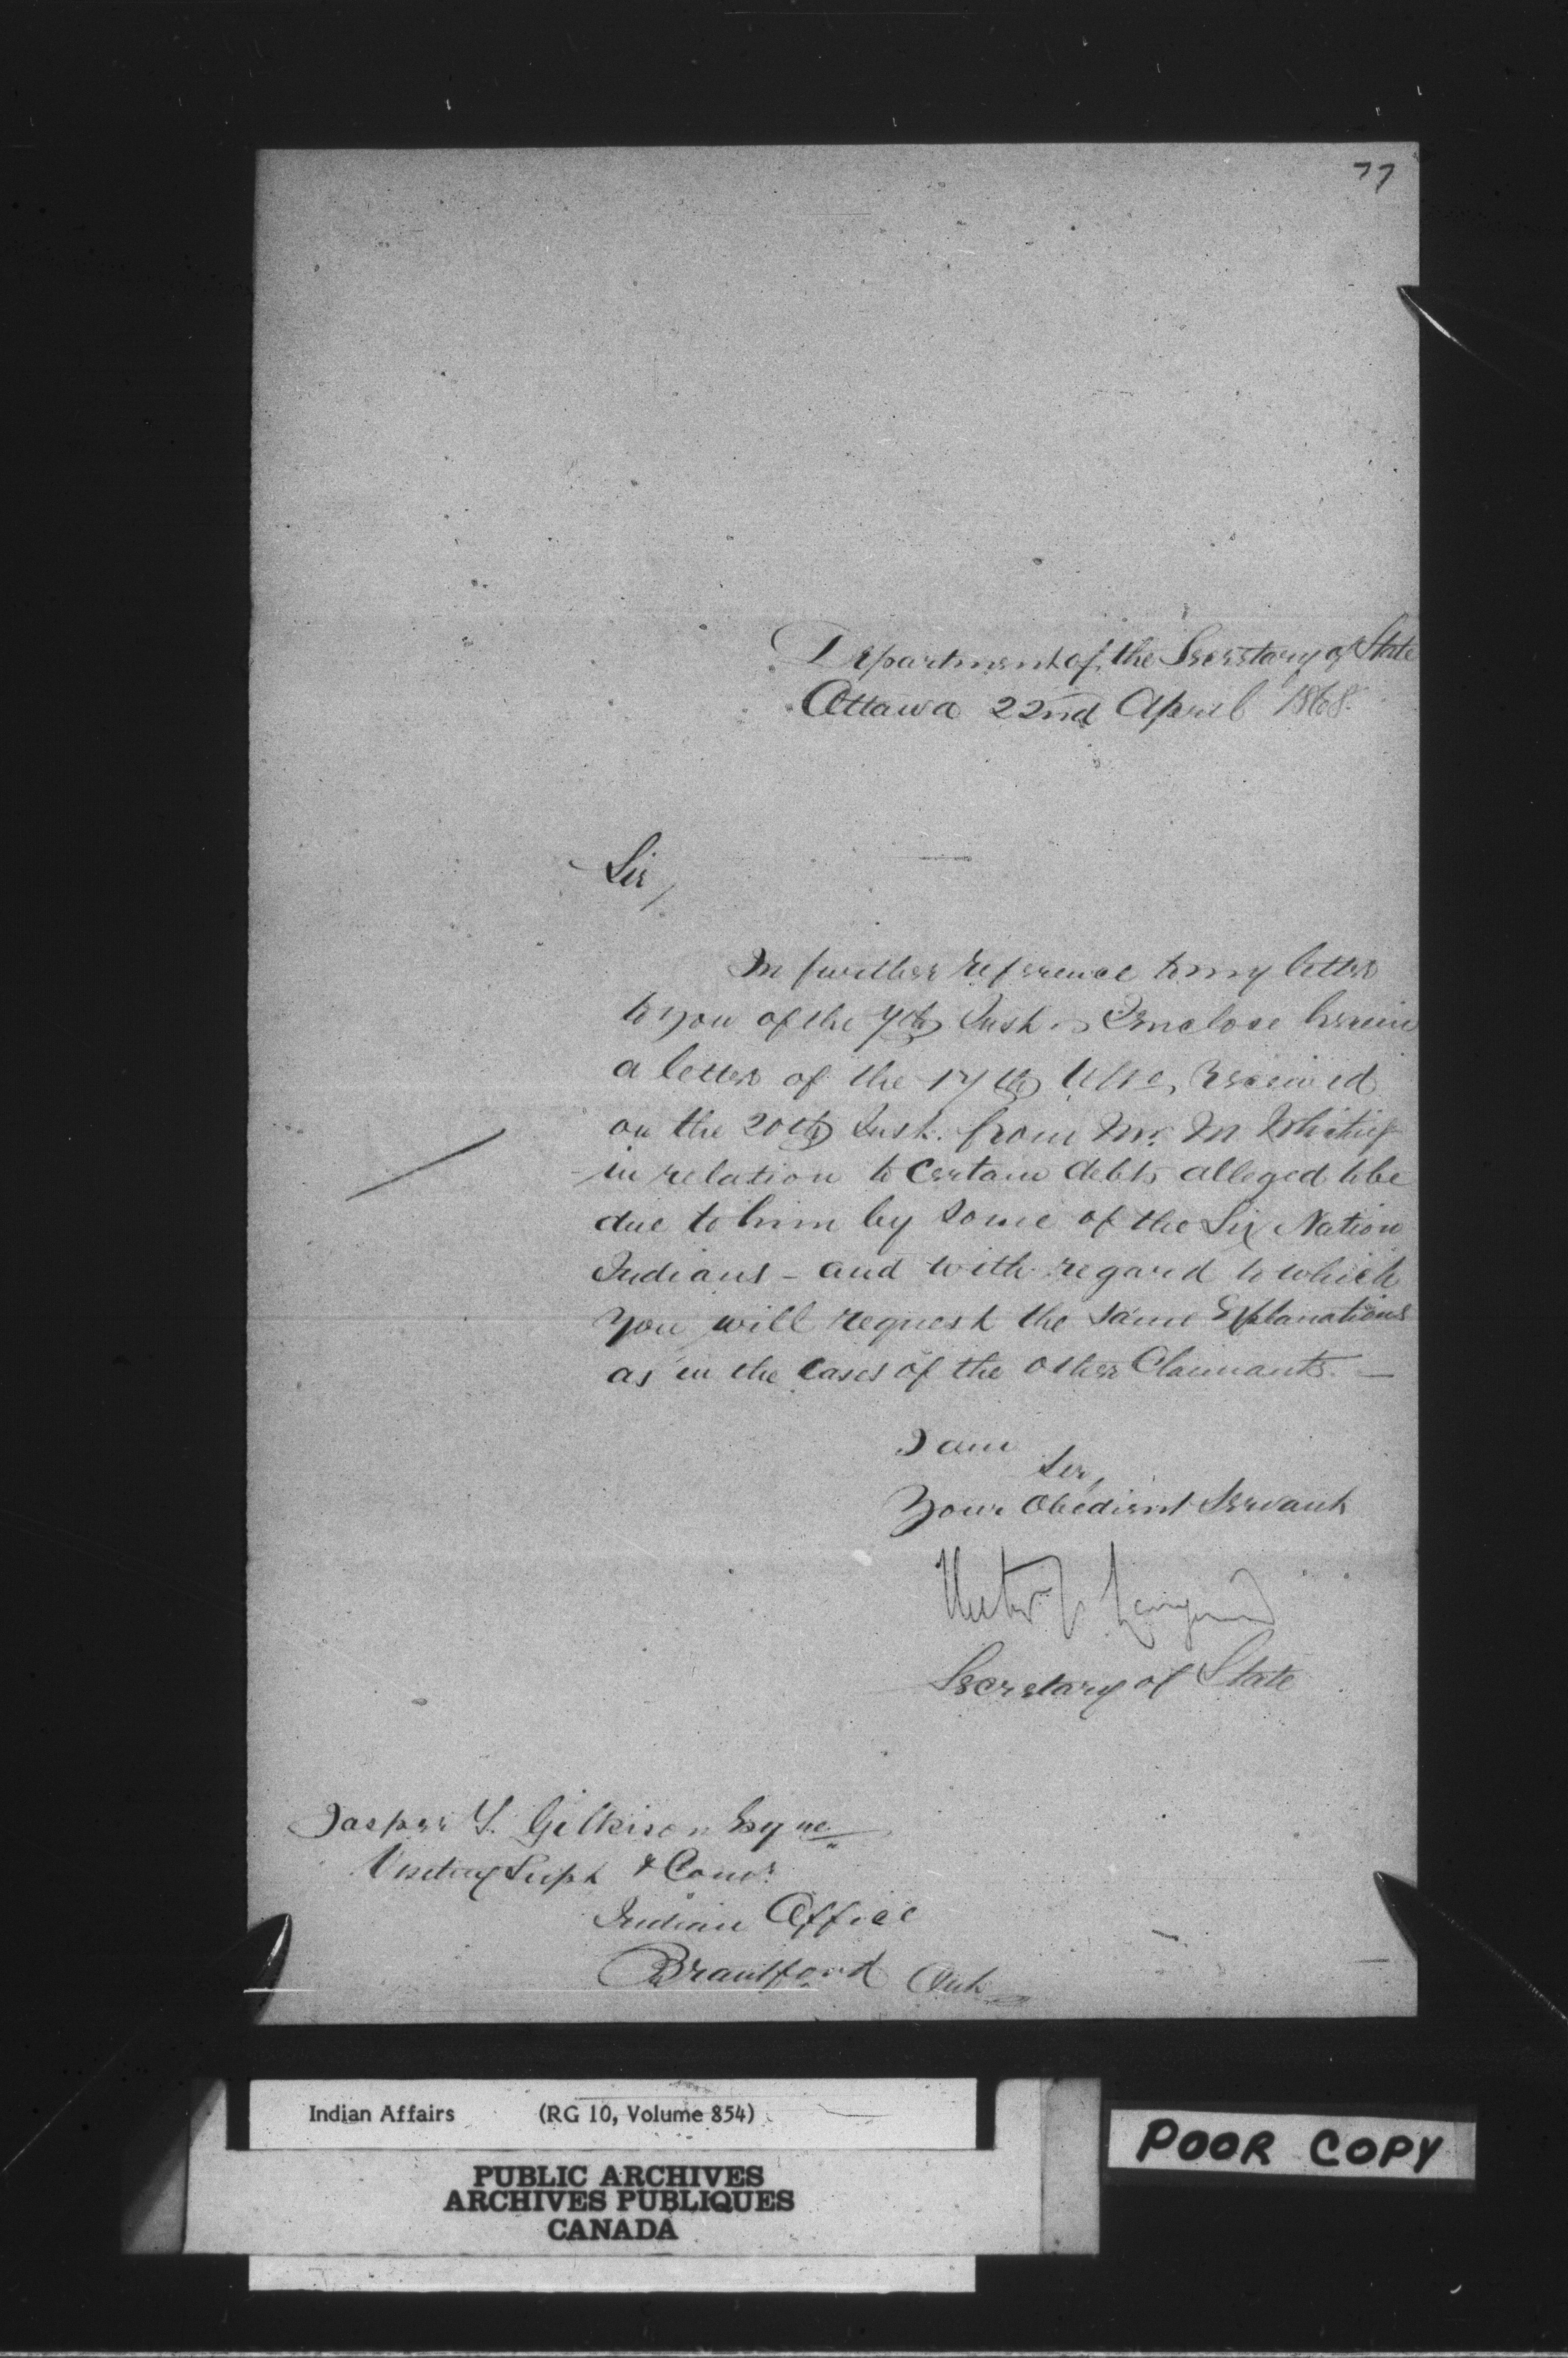 77
Department of the Secretary of State
Ottawa 22nd April 1868.
Sir,
In further reference to my letter
to you of the 7th Inst. I Enclose herein
a letter of the 17th Ulto, received
on the 20th Inst. from Mr. M Whiting
in relation to Certain debts alleged to be
due to him by some of the Six Nation
Indians - and with regard to which
you will request the same Explanations
as in the Cases of the other Claimants. -
I am
Sir,
Your Obedient Servant
Hector L Langevin
Secretary of State
Jasper T. Gilkison Esqre
Visiting Supt & Comr
Indian Office
Brantford Ont
Indian Affairs (RG 10, Volume 854)
PUBLIC ARCHIVES
ARCHIVES PUBLIQUES
CANADA
POOR COPY